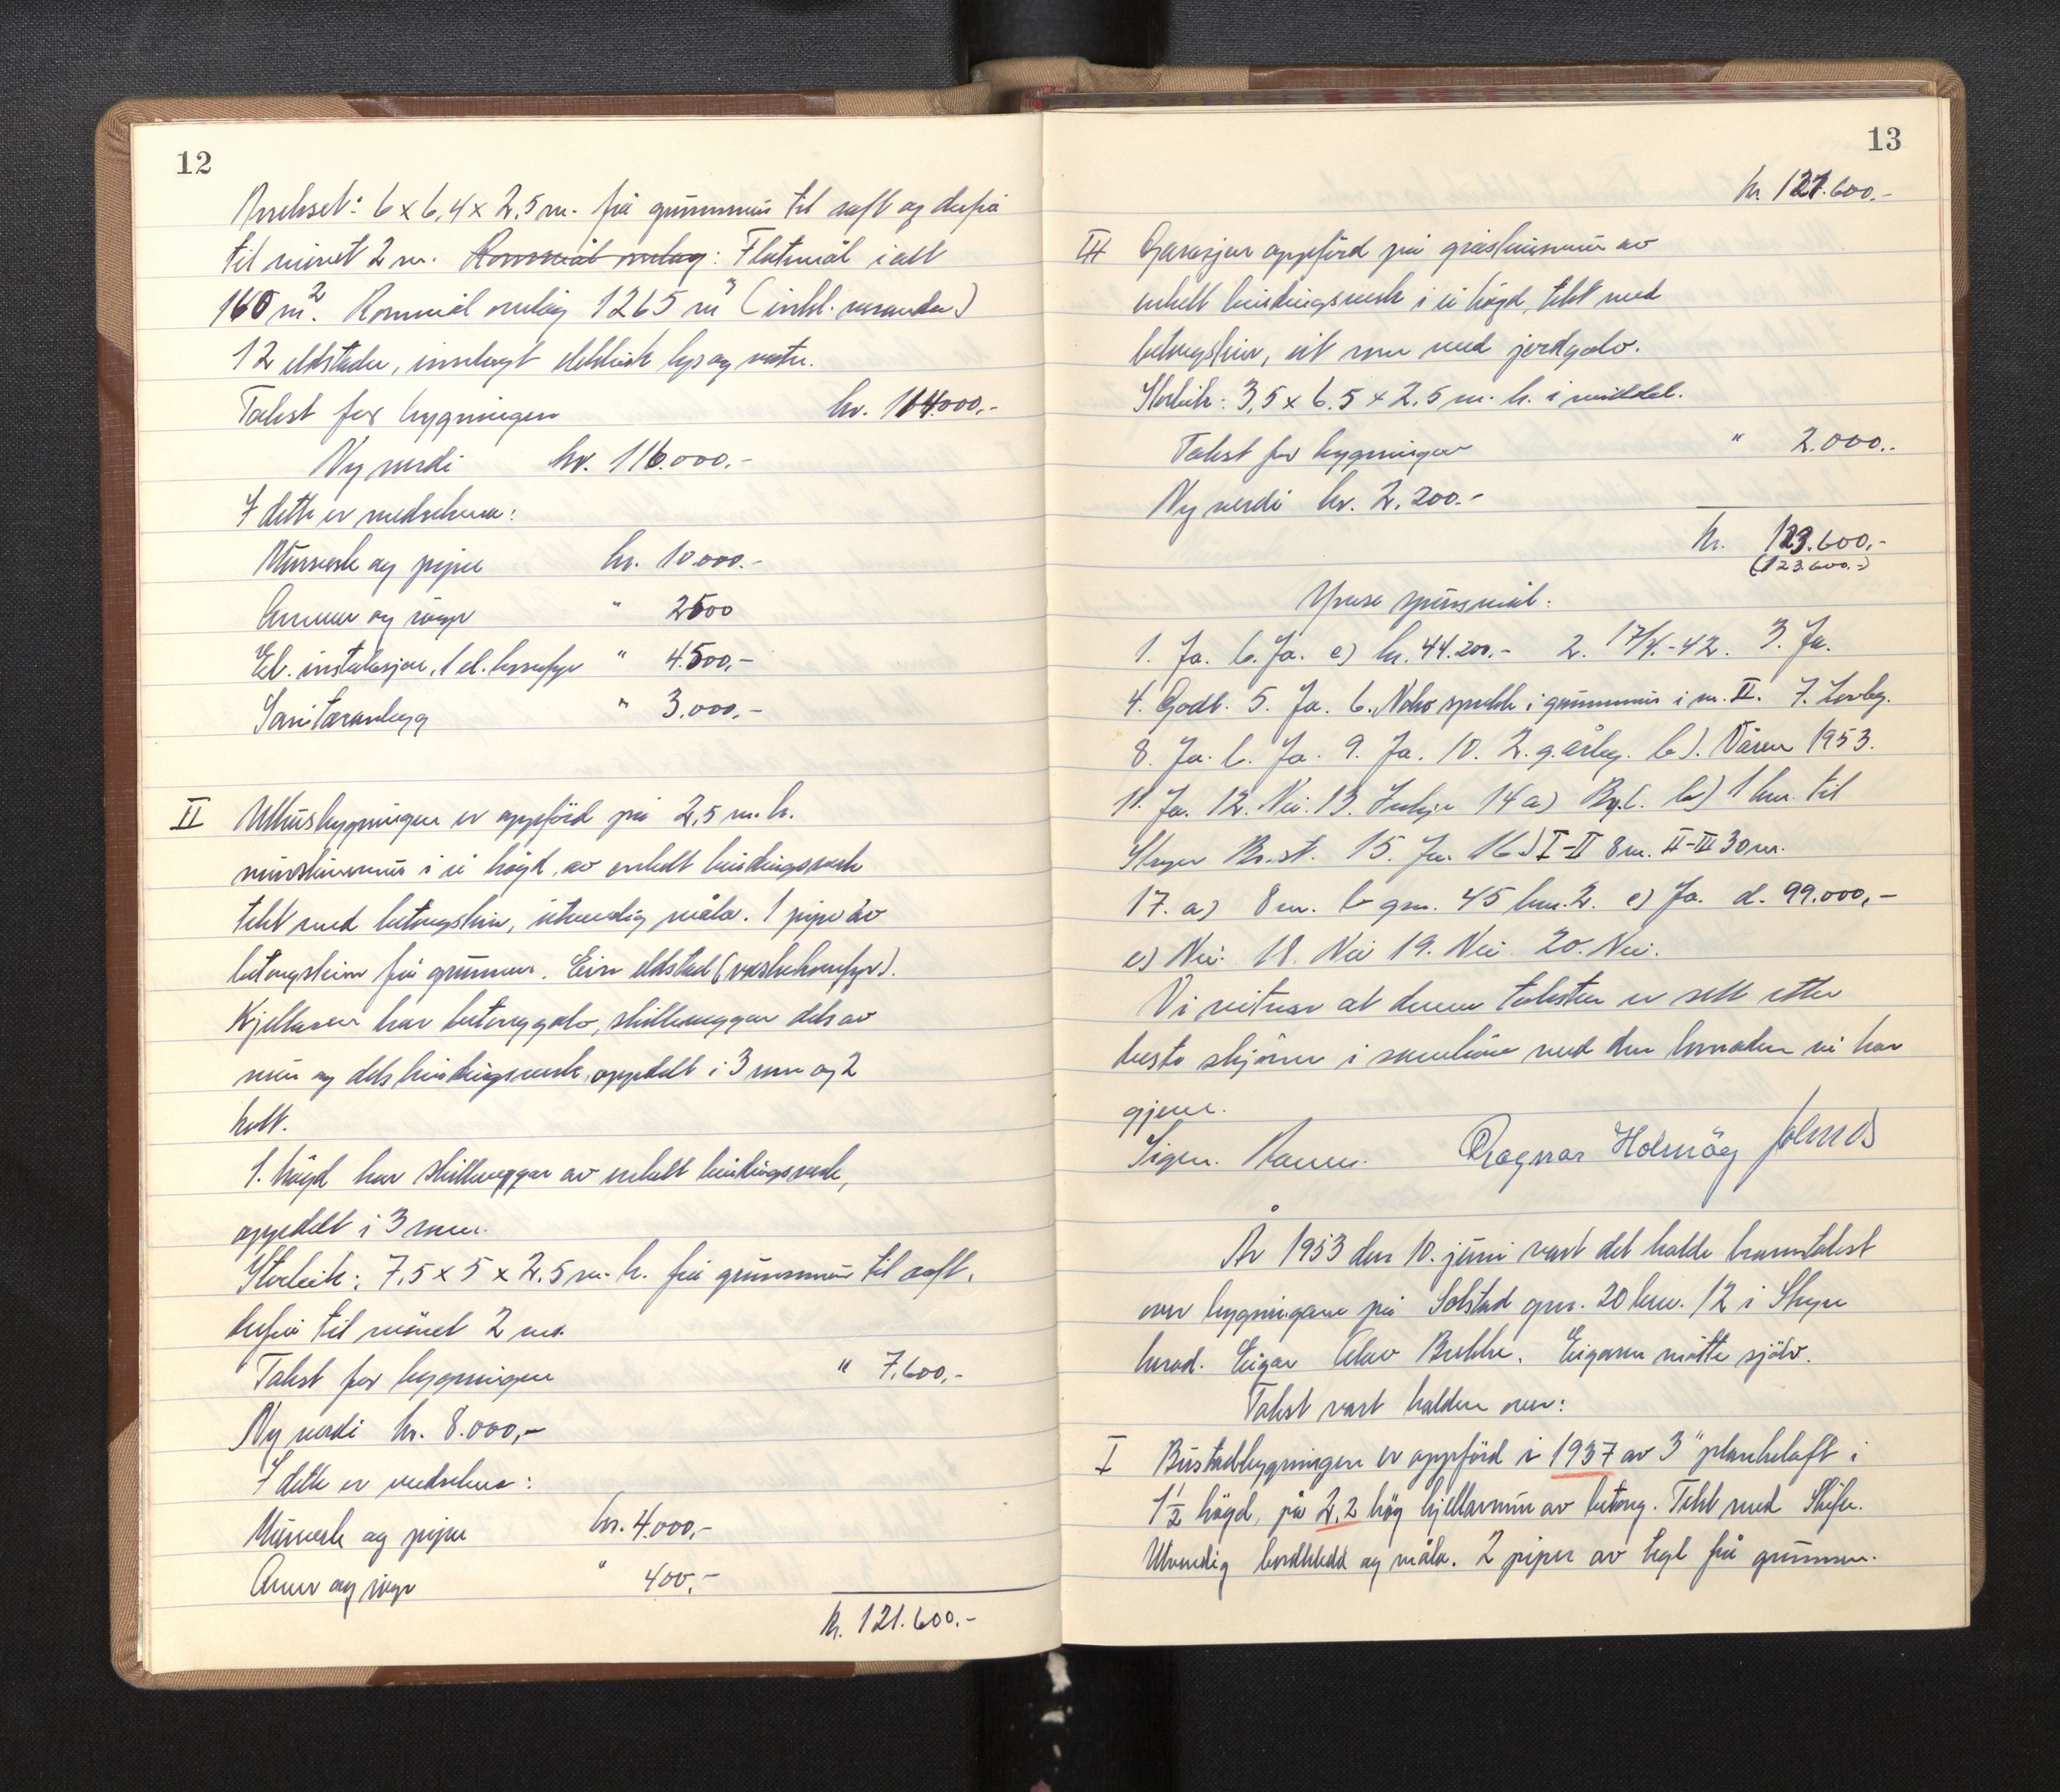 12
Annekset: 6 x 6,4 x 2,5 m. frå grunnmur til raft og derfrå
til mönet 2 m. Rommål omlag: Flatmål ialt
160 m². Rommål omlag 1265 m³ (inkl. veranda)
12 eldstader, innlagt elektrisk lys og vatn.
Takst for bygningen kr. 114.000,-
Ny verdi kr. 116.000.-
I dette er medrekna:
Murverk og pipor kr. 10.000.-
Omnar og ringar " 2500
El. instalasjon, 1 el. komfyr " 4.500,-
Sanitæranlegg " 3.000,-
II Uthusbygningen er oppförd på 2,5 m. h.
mursteinsmur i ei högd, av enkelt bindingsverk
tekt med betongstein, utvendig måla. 1 pipe av
betongstein frå grunnen. Ein eldstad (vaskekomfyr).
Kjellaren har betonggolv, skilleveggar dels av
mur og dels bindingsverk, oppdelt i 3 rom og 2
kott.
1. högd har skilleveggar av enkelt bindingsverk,
oppdelt i 3 rom.
Storleik: 7,5 x 5 x 2,5 m. h. frå grunnmur til raft,
derfrå til mönet 2 m.
Takst for bygningen " 7.600,-
Ny verdi kr. 8.000,-
I dette er medrekna:
Murverk og pipor kr. 4.000,-
Omnar og ringar " 400,-
kr. 121.600.-
13
kr. 121.600.-
III Garasjen oppförd på gråsteinsmur av
enkelt bindingsverk i ei högd, tekt med
betongstein, eit rom med jordgolv.
Storleik: 3,5 x 6.5 x 2.5 m. h. i middel.
Takst for bygningen " 2.000..
Ny verdi kr. 2.200.-
kr. 123.600,-
(123.600.-)
Ymse spursmål:
1. Ja. b. Ja. c) kr. 44.200.- 2. 17/4.-42. 3. Ja.
4. Godt. 5. Ja. 6. Noko sprekk i grunnmur i nr. II. 7. Forbyg.
8. Ja. b. Ja. 9. Ja. 10. 2. g. årleg. b). Våren 1953.
11. Ja. 12. Nei. 13. Inkje 14 a) Byl. b) 1 km. til
Stryn Br.st. 15. Ja. 16.) I-II 8 m. II-III 30 m.
17. a) 8 m. b gnr. 45 bnr. 2. c) Ja. d. 99.000,-
e) Nei. 18. Nei 19. Nei. 20. Nei.
Vi vitnar at denne taksten er sett etter
beste skjönn i samhöve med den kunnskapen vi har
gjeve.
Ragnar Holmög
År 1953 den 10. juni vart det halde branntakst
over bygningane på Solstad gnr. 20 bnr. 12 i Stryn
herad. Eigar Olav Bakke. Eigaren mötte sjölv.
Takst vart halden over:
I Bustadbygningen er oppförd i 1937 av 3" plankelaft i
1½ högd, på 2,2 hög kjellarmur av betong. Tekt med Skifer.
Utvendig bordkledd og måla. 2 piper av tegl frå grunnen.